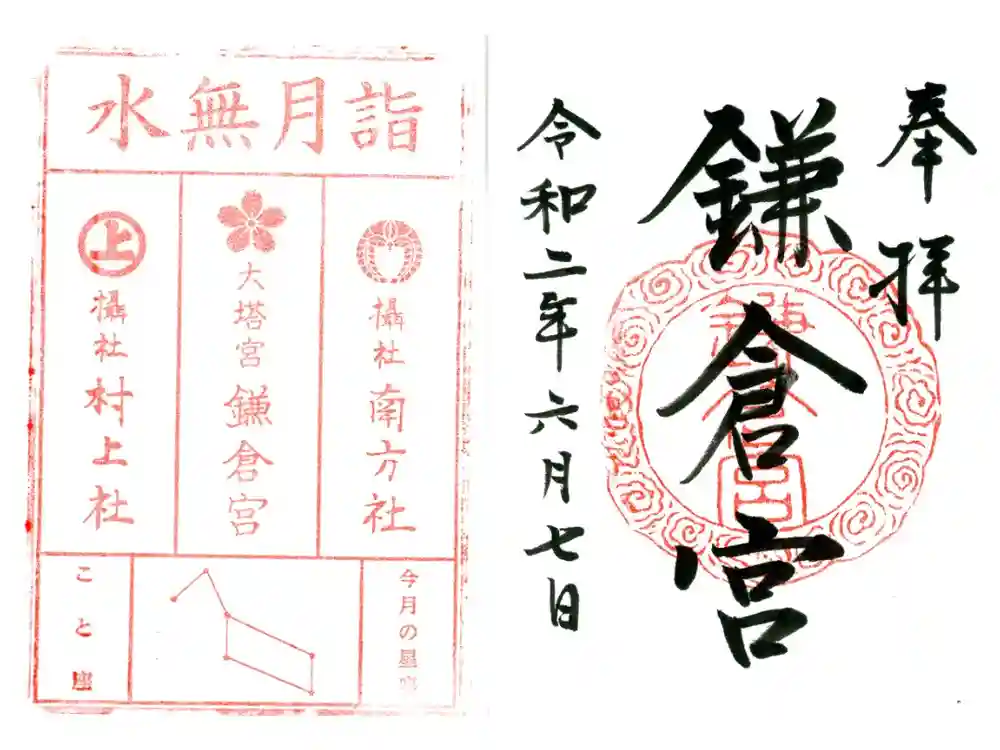 奉拝
鎌倉宮
令和二年六月七日
水無月詣
攝社 南方社
大塔宮 鎌倉宮
上
攝社 村上社
今月の星座
こと座